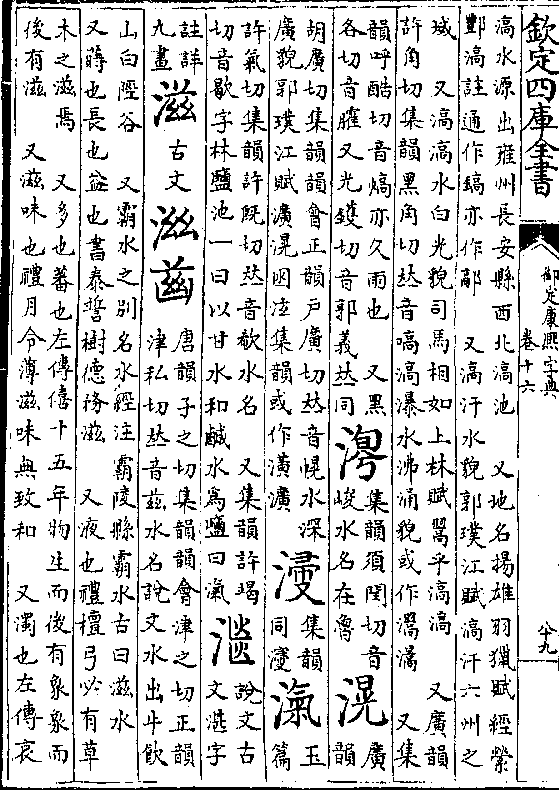 欽定四庫全書
御定康熙字典
卷十六
滈水源出雍州長安縣西北滈池　又地名揚雄羽獵賦經縈
酆滈註通作鎬亦作鄗　又滈汗水貌郭璞江賦滈汗六州之
域　又滈滈水白光貌司馬相如上林賦翯乎滈滈　又廣韻
許角切集韻黑角切𠀤音嗃滈瀑水沸涌貌或作　又集
韻呼酷切音熇亦久雨也　又黑
各切音臛又光鑊切音郭義𠀤同
集韻須閏切音
峻水名在魯
滉
廣
韻
胡廣切集韻韻會正韻戶廣切𠀤音幌水深
廣貌郭璞江賦瀇滉囦泫集韻或作潢瀇
集韻
同
滊
玉
篇
許氣切集韻許旣切𠀤音欷水名　又集韻許竭
切音歇字林鹽池一曰以甘水和鹹水為鹽曰滊
說文古
文湛字
註詳
九畫
滋
古文
唐韻子之切集韻韻會津之切正韻
津私切𠀤音茲水名說文水出牛飲
山白陘谷　又霸水之别名水經注霸陵縣霸水古曰滋水
又蒔也長也益也書泰誓樹德務滋　又液也禮檀弓必有草
木之滋焉　又多也蕃也左傳僖十五年物生而後有象象而
後有滋　又滋味也禮月令薄滋味無致和　又濁也左傳哀